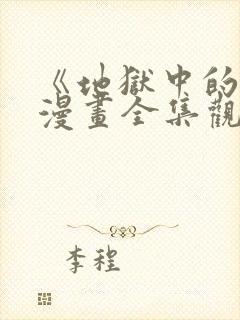 《地獄中的
漫畫全集觀
李程